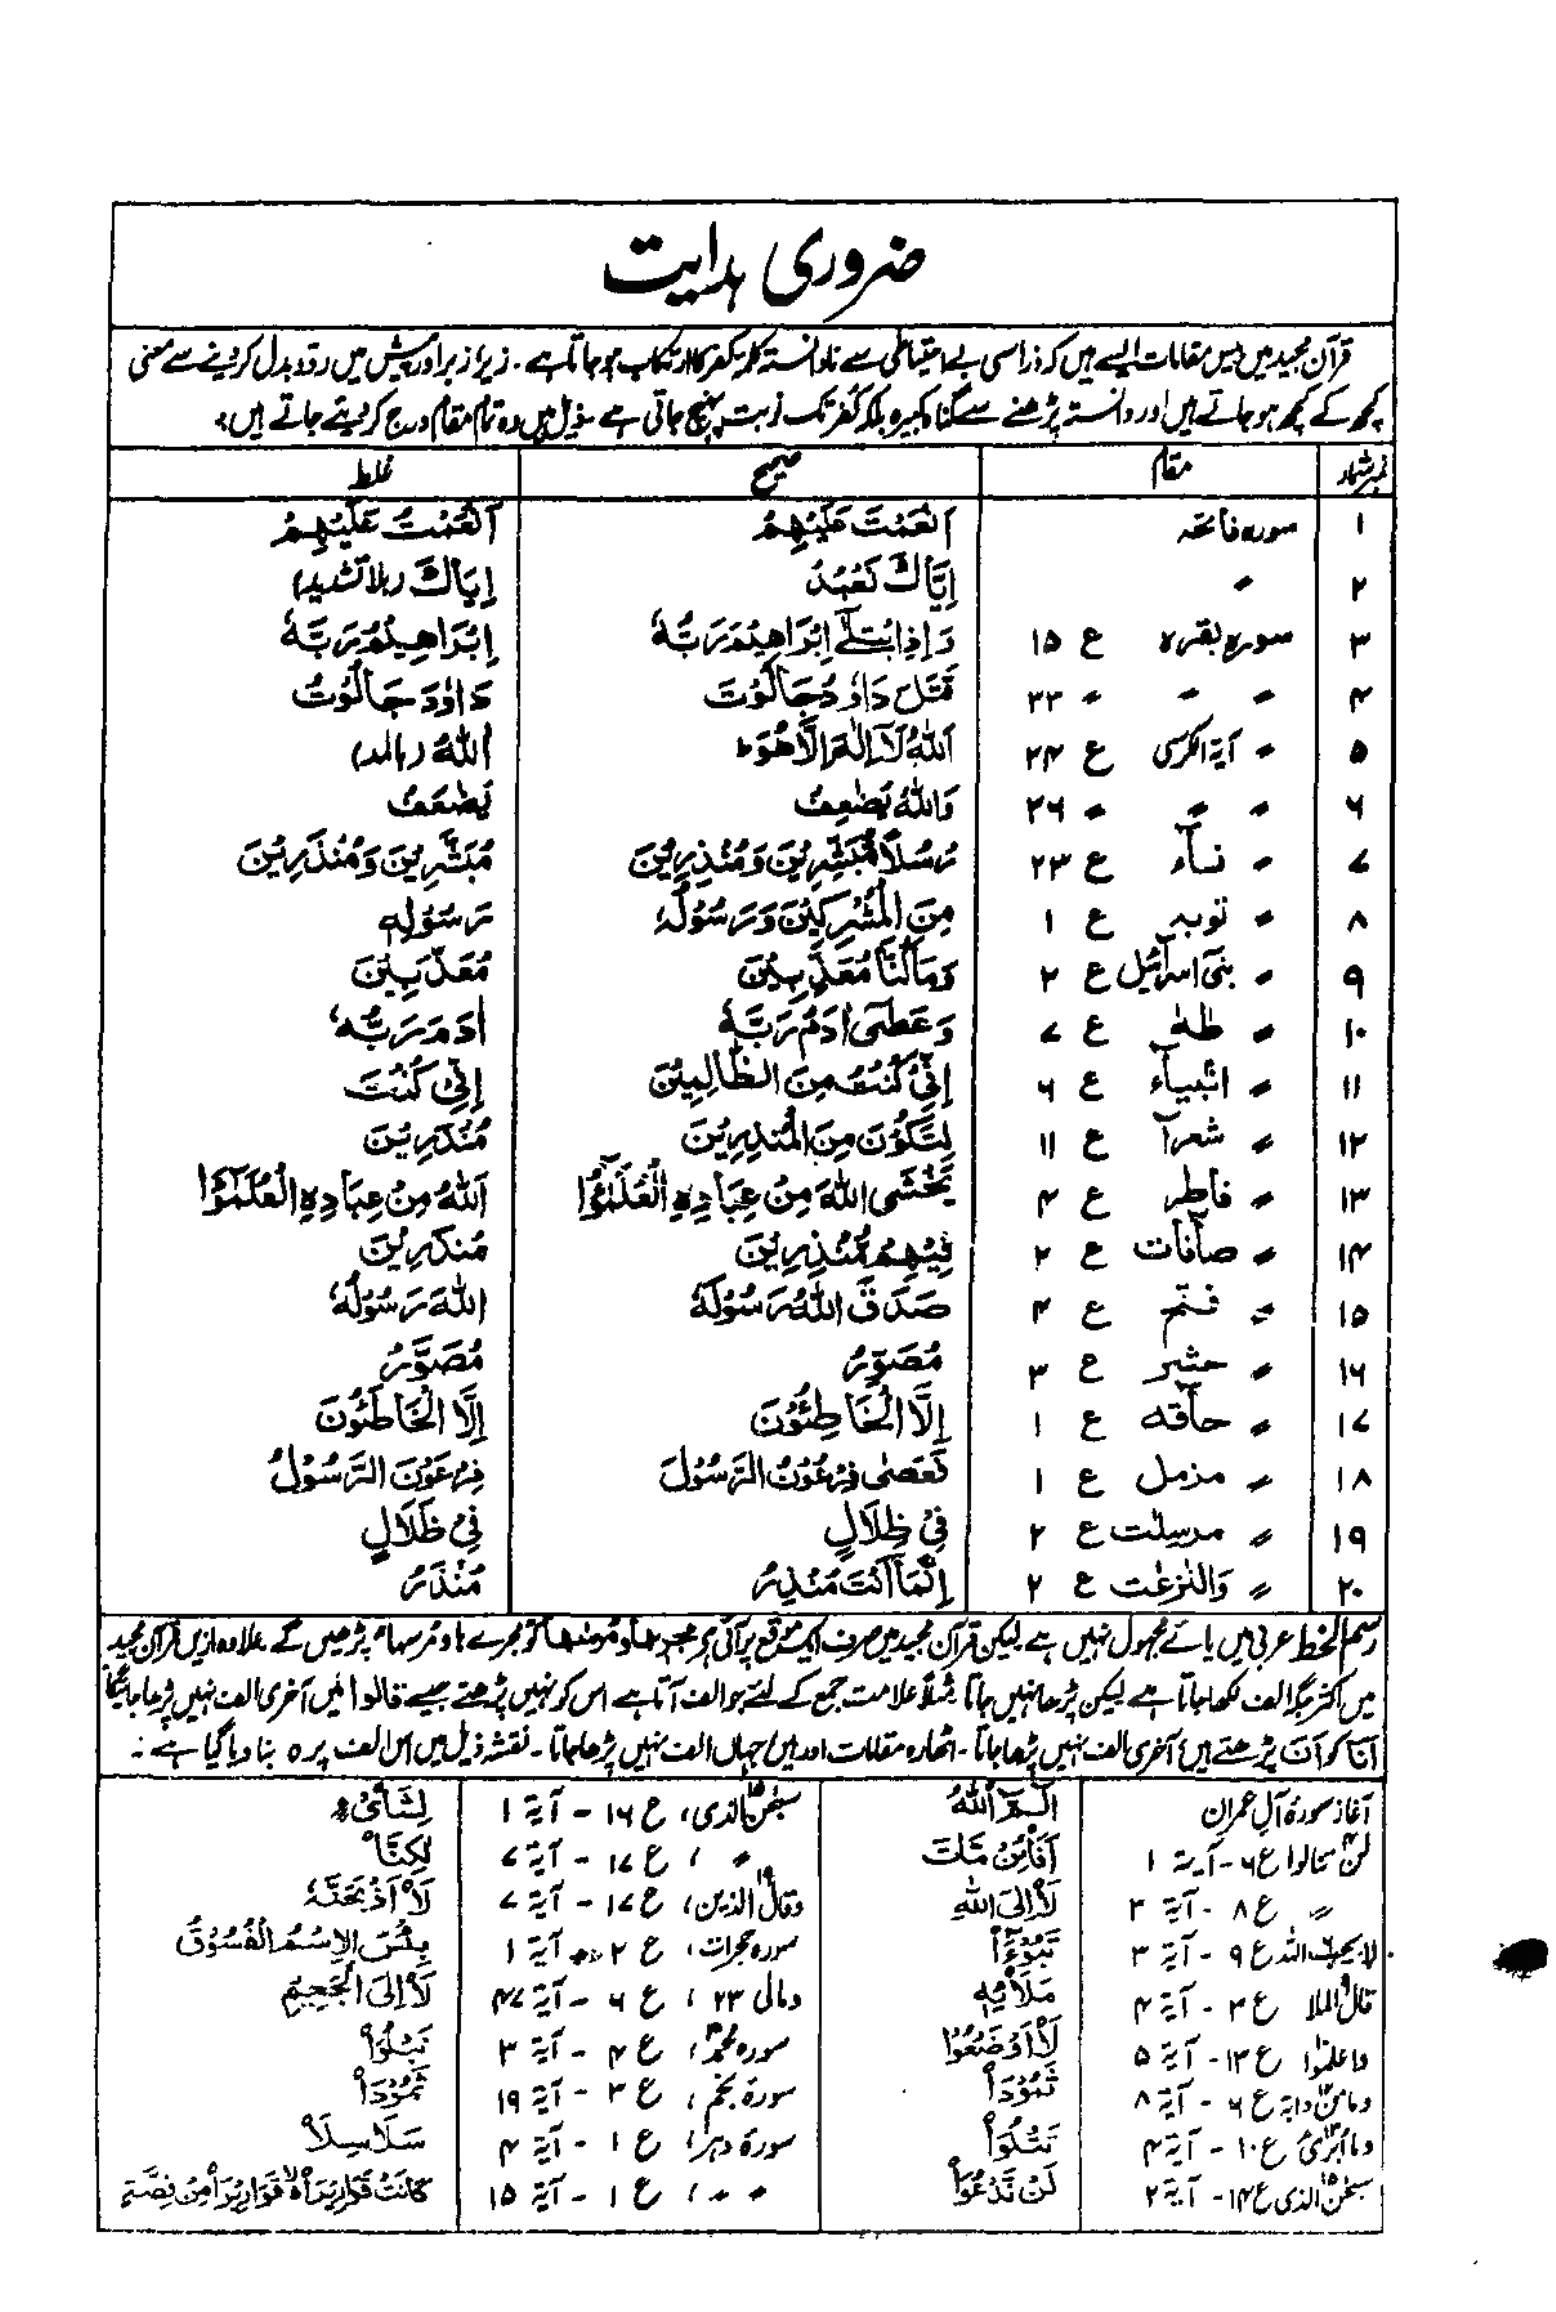 ضروری ہدایت
قرآن مجید میں بیس مقامات ایسے ہیں کہ ذرا سی بے احتیاطی سے نادانستہ کلمۂ کفر کا ارتکاب ہو جاتا ہے۔ زیر، زبر اور پیش میں ردّ و بدل کر دینے سے معنی
کچھ کے کچھ ہو جاتے ہیں اور دانستہ پڑھنے سے گناہ کبیرہ بلکہ کفر تک نوبت پہنچ جاتی ہے۔ ذیل میں وہ تمام مقام درج کر دیئے جاتے ہیں:
نمبر شمار مقام صحیح غلط
۱ سورہ فاتحہ اَنْعَمْتَ عَلَيْهِمْ اَنْعَمْتُ عَلَيْهِمْ
۲ 〃 اِيَّاكَ نَعْبُدُ اِيَاكَ (بلا تشدید)
۳ سورہ بقرہ ع ۱۵ وَاِذِابْتَلٰٓى اِبْرَاهِيْمَ رَبُّهٗ اِبْرَاهِيْمُ رَبَّهٗ
۴ 〃 〃 〃 ۳۳ قَتَلَ دَاوٗدُ جَالُوْتَ دَاوٗدَ جَالُوْتُ
۵ 〃 آیۃ الکرسی ع ۳۴ اَللّٰهُ لَآ اِلٰهَ اِلَّا هُوَ ط اَللّٰهُ (بالمد)
۶ 〃 〃 〃 ۳۶ وَاللّٰهُ يُضٰعِفُ يُضٰعَفُ
۷ 〃 نسآء ع ۲۳ رُسُلًا مُّبَشِّرِيْنَ وَمُنْذِرِيْنَ مُبَشَّرِيْنَ وَمُنْذَرِيْنَ
۸ 〃 توبہ ع ۱ مِنَ الْمُشْرِكِيْنَ وَرَسُوْلُهٗ رَسُوْلِهٖ
۹ 〃 بنی اسرآئیل ع ۲ وَمَا كُنَّا مُعَذِّبِيْنَ مُعَذَّبِيْنَ
۱۰ 〃 طٰهٰ ع ۷ وَعَصٰٓى اٰدَمُ رَبَّهٗ اٰدَمَ رَبُّهٗ
۱۱ 〃 انبیآء ع ۶ اِنِّىْ كُنْتُ مِنَ الظَّالِمِيْنَ اِنِّىْ كُنْتَ
۱۲ 〃 شعرآ ع ۱۱ لِتَكُوْنَ مِنَ الْمُنْذِرِيْنَ مُنْذَرِيْنَ
۱۳ 〃 فاطر ع ۴ يَخْشَى اللّٰهَ مِنْ عِبَادِهِ الْعُلَمٰٓؤُا اَللّٰهُ مِنْ عِبَادِهِ الْعُلَمٰٓؤَا
۱۴ 〃 صآفّات ع ۲ فِيْهِمْ مُّنْذِرِيْنَ مُنْذَرِيْنَ
۱۵ 〃 فتح ع ۴ صَدَقَ اللّٰهُ رَسُوْلَهٗ اللّٰهَ رَسُوْلُهٗ
۱۶ 〃 حشر ع ۳ مُصَوِّرُ مُصَوَّرُ
۱۷ 〃 حآقہ ع ۱ اِلَّا الْخَاطِئُوْنَ اِلَّا الْخَاطَئُوْنَ
۱۸ 〃 مزمل ع ۱ فَعَصٰى فِرْعَوْنُ الرَّسُوْلَ فِرْعَوْنَ الرَّسُوْلُ
۱۹ 〃 مرسلٰت ع ۲ فِىْ ظِلَالٍ فِىْ ظَلَالٍ
۲۰ 〃 والنٰزعٰت ع ۲ اِنَّمَآ اَنْتَ مُنْذِرُ مُنْذَرُ
رسم الخط عربی میں یائے مجہول نہیں ہے لیکن قرآن مجید میں صرف ایک موقع پر آئی ہے مجرىها و مرسها کو مجرے ہا و مرسہا پڑھیں گے علاوہ ازیں قرآن مجید
میں اکثر جگہ الف لکھا جاتا ہے لیکن پڑھا نہیں جاتا مثلاً علامت جمع کے لئے جو الف آتا ہے اس کو نہیں پڑھتے جیسے قالوا میں آخری الف نہیں پڑھا جائیگا
اَنَا کو اَنَ پڑھتے ہیں آخری الف نہیں پڑھا جاتا۔ اٹھارہ مقامات اور ہیں جہاں الف نہیں پڑھا جاتا۔ نقشہ ذیل میں اس الف پر ه بنا دیا گیا ہے:
آغاز سورۂ آلِ عمران الٓمّٓ اَللّٰهُ سبحٰن الذی، ع ۱۶ - آیۃ ۱ لِشَاىْءٍ
لن تنالوا ع ۶ - آیۃ ۱ اَفَا۟ئِنْ مَّاتَ 〃 ، ع ۱۷ - آیۃ ۷ لٰكِنَّا۟
〃 ع ۸ - آیۃ ۳ لَا۟اِلَى اللّٰهِ وقال الذین، ع ۱۷ - آیۃ ۷ لَا۟اَذْبَحَنَّهٗ
لا یحب اللہ ع ۹ - آیۃ ۳ تَبُوْٓءَا۟ سورہ حجرات، ع ۲ - آیۃ ۱ بِئْسَ الِاسْمُ الْفُسُوْقُ
قال الملا ع ۳ - آیۃ ۴ مَلَا۟ئِهٖ ومالی ۲۳ ، ع ۶ - آیۃ ۴۷ لَا۟اِلَى الْجَحِيْمِ
واعلموا ع ۱۳ - آیۃ ۵ لَا۟اَوْضَعُوْا سورہ محمد، ع ۴ - آیۃ ۳ نَبْلُوَا۟
ومامن دابۃ ع ۶ - آیۃ ۸ ثَمُوْدَا۟ سورۃ نجم، ع ۳ - آیۃ ۱۹ ثَمُوْدَا۟
وما ابرئ ع ۱۰ - آیۃ ۴ لِتَتْلُوَا۟ سورۃ دہر، ع ۱ - آیۃ ۴ سَلَاسِلَا۟
سبحٰن الذی ع ۱۴ - آیۃ ۲ لَنْ نَّدْعُوَا۟ 〃 〃 ، ع ۱ - آیۃ ۱۵ كَانَتْ قَوَارِيْرَا۟ قَوَارِيْرَا۟ مِنْ فِضَّةٍ